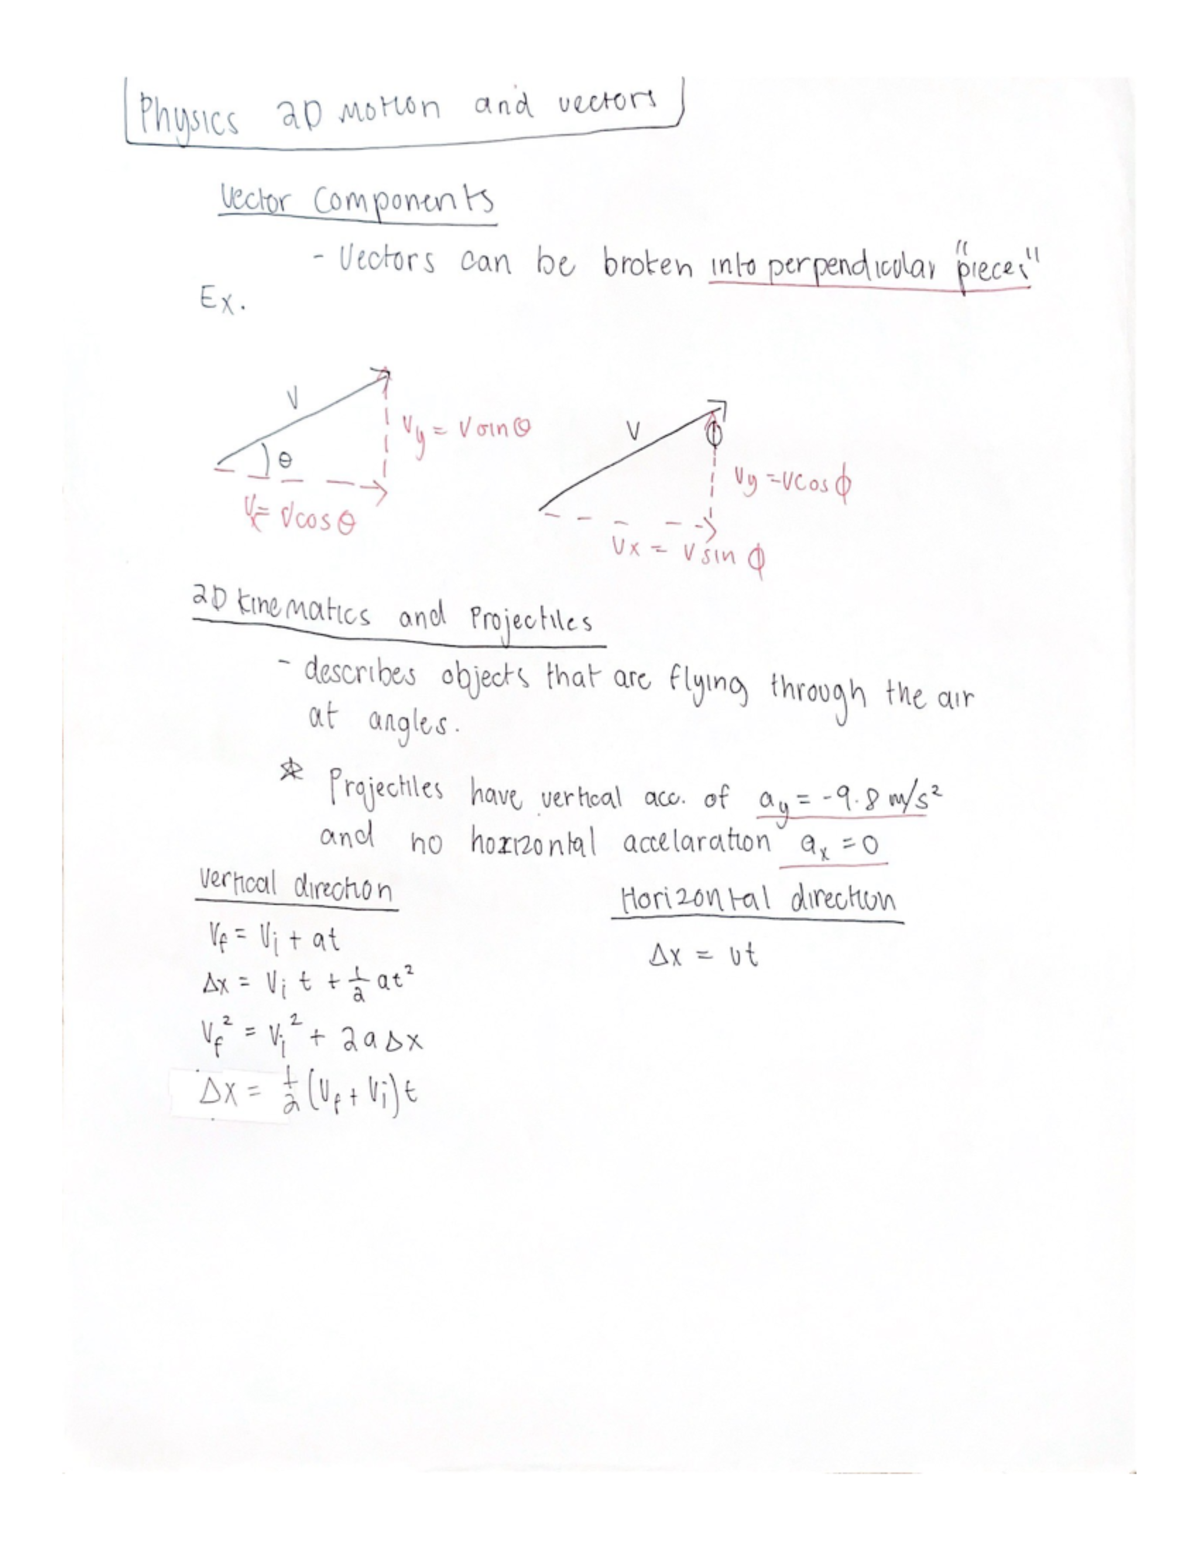 Physics 2D Motion and vectors
Vector Components
- Vectors can be broken into perpendicular "pieces"
Ex.
V
θ
Vy = V sin θ
Vx = V cos θ
V
ϕ
Vy = V cos ϕ
Vx = V sin ϕ
2D Kinematics and Projectiles
- describes objects that are flying through the air
at angles.
☆ Projectiles have vertical acc. of ay = -9.8 m/s²
and no horizontal accelaration ax = 0
Vertical direction
Vf = Vi + at
Δx = Vi t + 1/2 at²
Vf² = Vi² + 2aΔx
Δx = 1/2 (Vf + Vi) t
Horizontal direction
Δx = vt